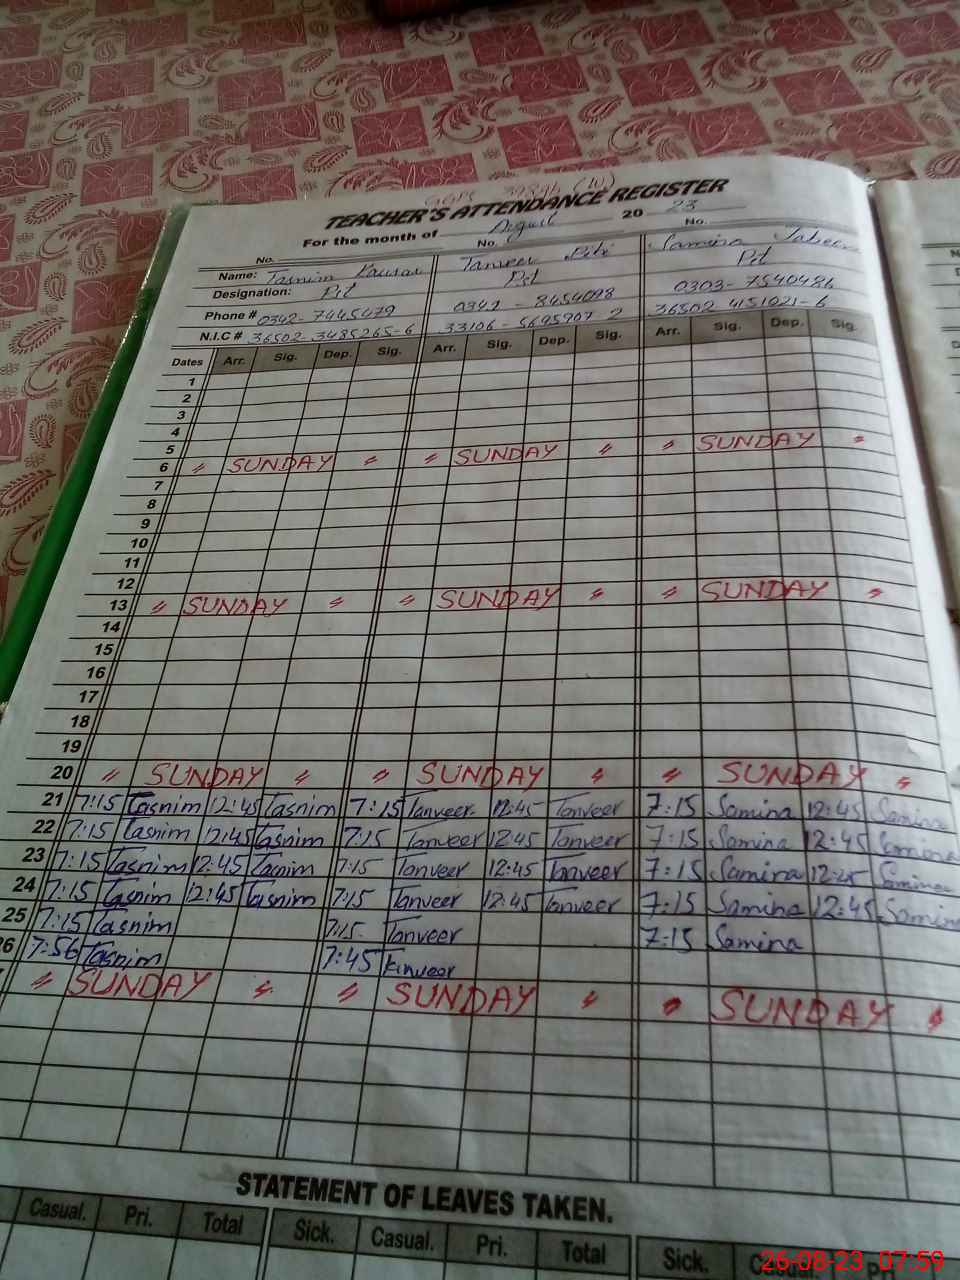 TEACHER'S ATTENDANCE REGISTER
For the month of August 20 23
No. No. No.
Name: Tasnim Kausar Tanveer Bibi Samina Jabeen
Designation: Pst Pst Pst
Phone # 0342-7445479 0342-8454098 0303-7540486
N.I.C # 36502-3485265-6 33106-5695907 2 36502 4151021-6
Dates Arr. Sig. Dep. Sig. Arr. Sig. Dep. Sig. Arr. Sig. Dep. Sig.
1
2
3
4
5
6 〃 SUNDAY 〃 〃 SUNDAY 〃 〃 SUNDAY 〃
7
8
9
10
11
12
13 〃 SUNDAY 〃 〃 SUNDAY 〃 〃 SUNDAY 〃
14
15
16
17
18
19
20 〃 SUNDAY 〃 〃 SUNDAY 〃 〃 SUNDAY 〃
21 7:15 Tasnim 12:45 Tasnim 7:15 Tanveer 12:45 Tanveer 7:15 Samina 12:45 Samina
22 7:15 Tasnim 12:45 Tasnim 7:15 Tanveer 12:45 Tanveer 7:15 Samina 12:45 Samina
23 7:15 Tasnim 12:45 Tasnim 7:15 Tanveer 12:45 Tanveer 7:15 Samina 12:45 Samina
24 7:15 Tasnim 12:45 Tasnim 7:15 Tanveer 12:45 Tanveer 7:15 Samina 12:45 Samina
25 7:15 Tasnim 7:15 Tanveer 7:15 Samina
26 7:56 Tasnim 7:45 Tanveer
〃 SUNDAY 〃 〃 SUNDAY 〃 〃 SUNDAY 〃
STATEMENT OF LEAVES TAKEN.
Casual. Pri. Total Sick. Casual. Pri. Total Sick.
26-08-23 07:59